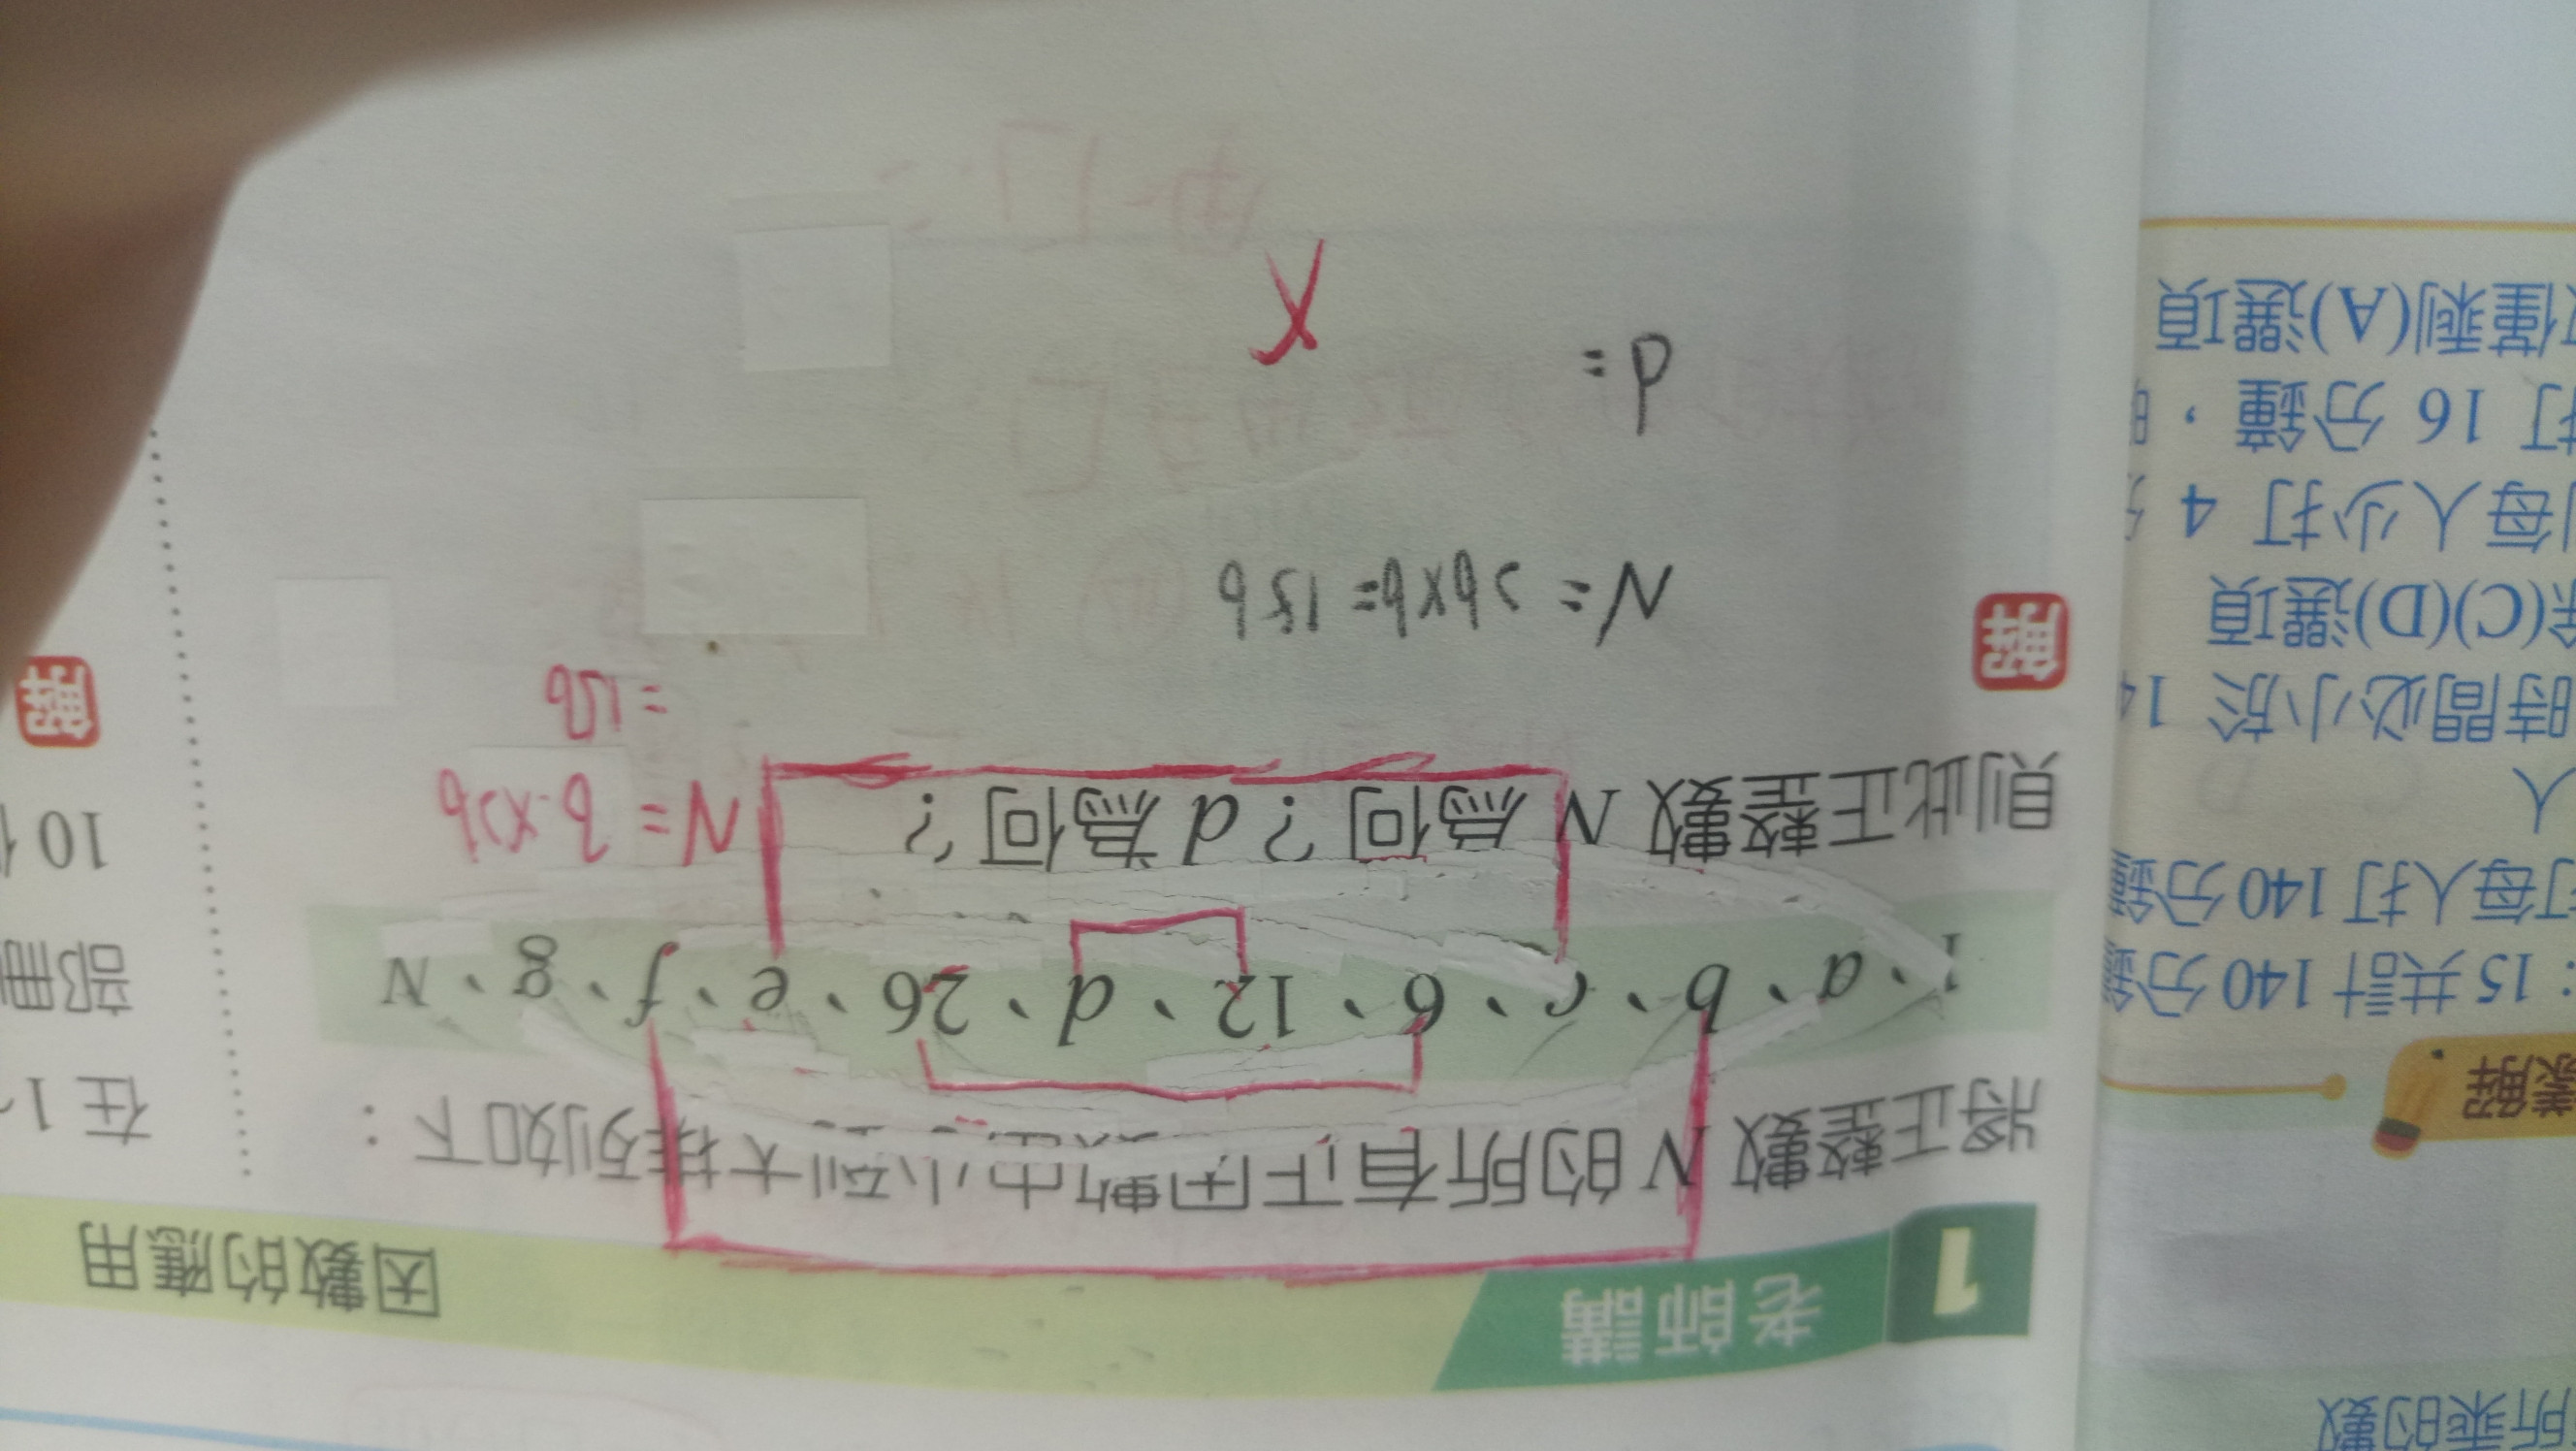 所乘的數
1 老師講
因數的應用
將正整數 N 的所有正因數由小到大排列如下：
1、a、b、c、6、12、d、26、e、f、g、N
則此正整數 N 為何？d 為何？
N=6×26
=156
解
N=26×6=156
d=
在 1
部冊
10
解
解
：15 共計 140 分鐘
打每人打 140 分鐘
人
時間必小於 14
(C)(D)選項
每人少打 4 分
打 16 分鐘，
僅剩(A)選項